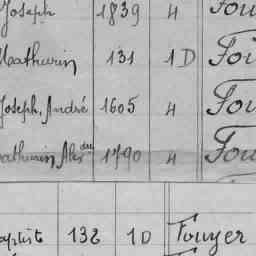 Joseph 1839 4 Fou
Mathurin 131 1D Fou
Joseph, André 1605 4 Fou
athurin Alex dre 1790 4 Fou
aptiste 132 1D Fouyer